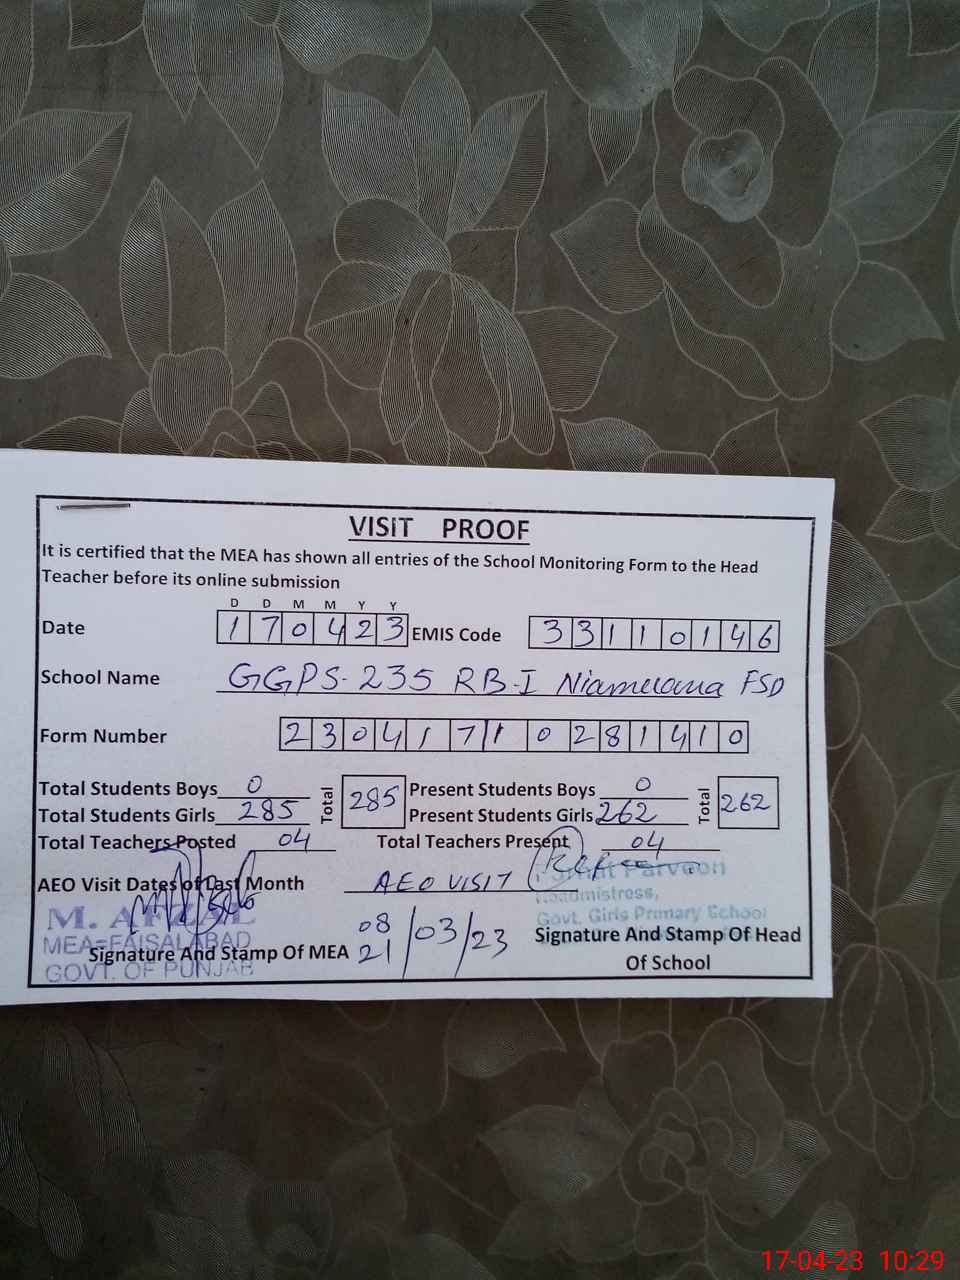 VISIT PROOF
It is certified that the MEA has shown all entries of the School Monitoring Form to the Head
Teacher before its online submission
D D M M Y Y
Date 170423 EMIS Code 33110146
School Name GGPS-235 RB-I Niamuana FSD
Form Number 23041710281410
Total Students Boys 0 Total 285 Present Students Boys 0 Total 262
Total Students Girls 285 Present Students Girls 262
Total Teachers Posted 04 Total Teachers Present 04
AEO Visit Dates of Last Month AEO VISIT
08
21 /03/23
M. AFZAL
MEA-FAISALABAD
GOVT. OF PUNJAB
Signature And Stamp Of MEA
Parveen
Headmistress,
Govt. Girls Primary School
Signature And Stamp Of Head
Of School
17-04-23 10:29